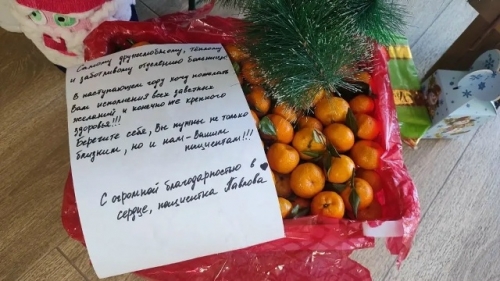 Самому дружелюбному, тёплому
и заботливому отделению больницы
В наступающем году хочу пожелать
Вам исполнения всех заветных
желаний и конечно же крепкого
здоровья!!!
Берегите себя, Вы нужны не только
близким, но и нам - Вашим
пациентам!!!
С огромной благодарностью в
сердце, пациентка Павлова